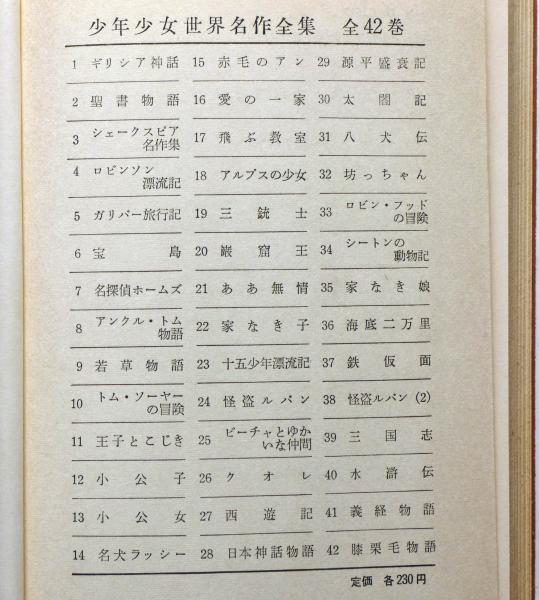 少年少女世界名作全集　全42巻
1 ギリシア神話
2 聖書物語
3 シェークスピア
名作集
4 ロビンソン
漂流記
5 ガリバー旅行記
6 宝島
7 名探偵ホームズ
8 アンクル・トム
物語
9 若草物語
10 トム・ソーヤー
の冒険
11 王子とこじき
12 小公子
13 小公女
14 名犬ラッシー
15 赤毛のアン
16 愛の一家
17 飛ぶ教室
18 アルプスの少女
19 三銃士
20 巌窟王
21 ああ無情
22 家なき子
23 十五少年漂流記
24 怪盗ルパン
25 ビーチャとゆか
いな仲間
26 クオレ
27 西遊記
28 日本神話物語
29 源平盛衰記
30 太閤記
31 八犬伝
32 坊っちゃん
33 ロビン・フッド
の冒険
34 シートンの
動物記
35 家なき娘
36 海底二万里
37 鉄仮面
38 怪盗ルパン(2)
39 三国志
40 水滸伝
41 義経物語
42 膝栗毛物語
定価 各230円